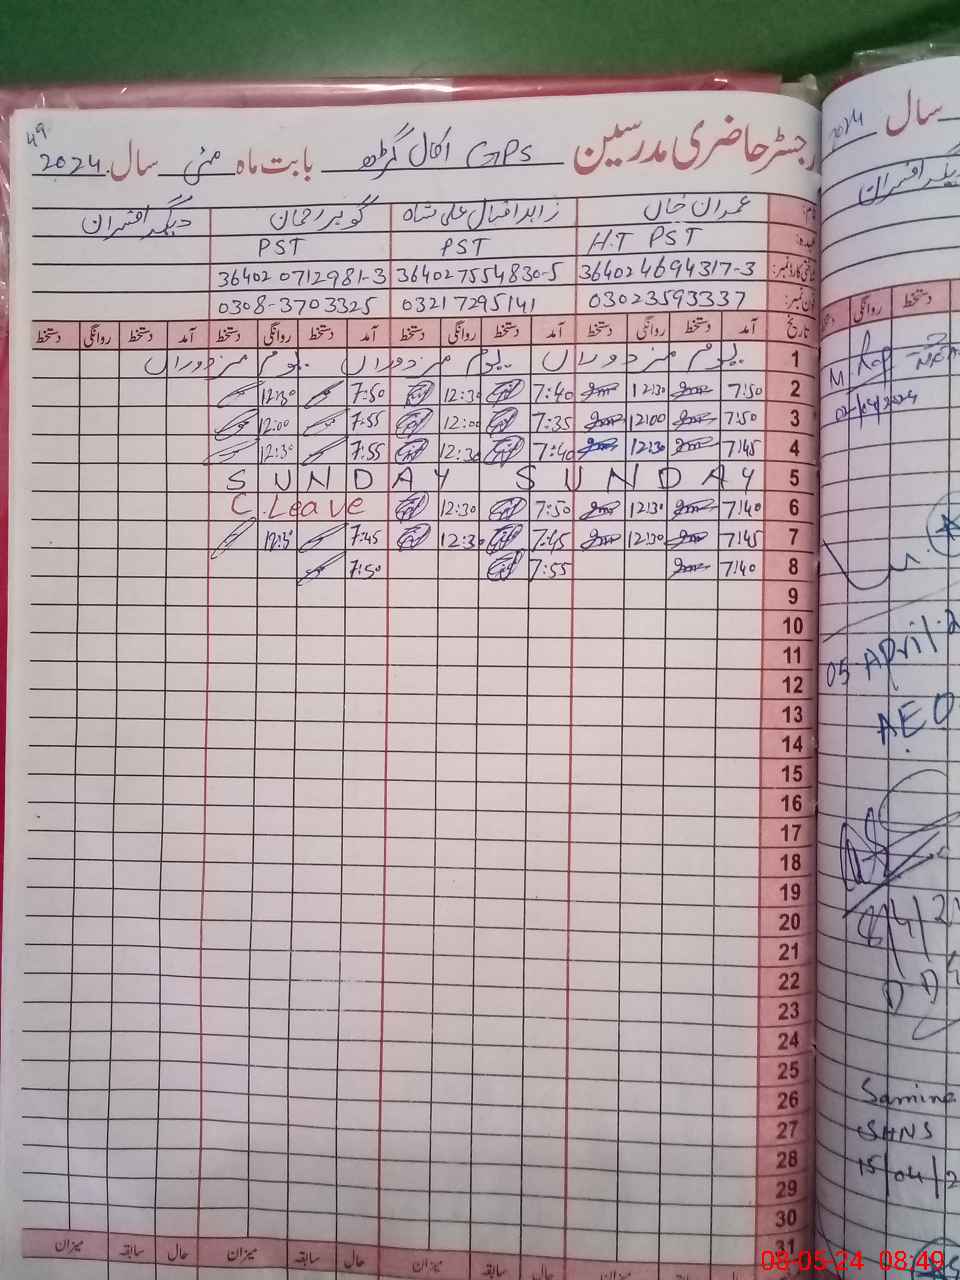 49
رجسٹر حاضری مدرسین GPS اکال گڑھ بابت ماہ مئی سال 2024
نام: عمران خان زاہد اقبال علی شاہ گوہر رحمان دیگر افسران
عہدہ: H.T PST PST PST
شناختی کارڈ نمبر: 364024694317-3 364027554830-5 364020712981-3
فون نمبر: 03023593337 03217295141 0308-3703325
تاریخ آمد دستخط روانگی دستخط آمد دستخط روانگی دستخط آمد دستخط روانگی دستخط آمد دستخط روانگی دستخط
1 یوم مزدوراں یوم مزدوراں یوم مزدوراں
2 7:50 12:30 7:40 12:30 7:50 12:30
3 7:50 12:00 7:35 12:00 7:55 12:00
4 7:45 12:30 7:40 12:30 7:55 12:30
5 SUNDAY SUNDAY
6 7:40 12:30 7:50 12:30 C.Leave
7 7:45 12:30 7:45 12:30 7:45 12:30
8 7:40 7:55 7:50
9
10
11
12
13
14
15
16
17
18
19
20
21
22
23
24
25
26
27
28
29
30
31
حال سابقہ میزان حال سابقہ میزان حال سابقہ میزان حال سابقہ میزان
سال 2024
دیگر افسران
دستخط روانگی دستخط
05 April
AEO
Samina
SHNS
15/04/2
08-05-24 08:49